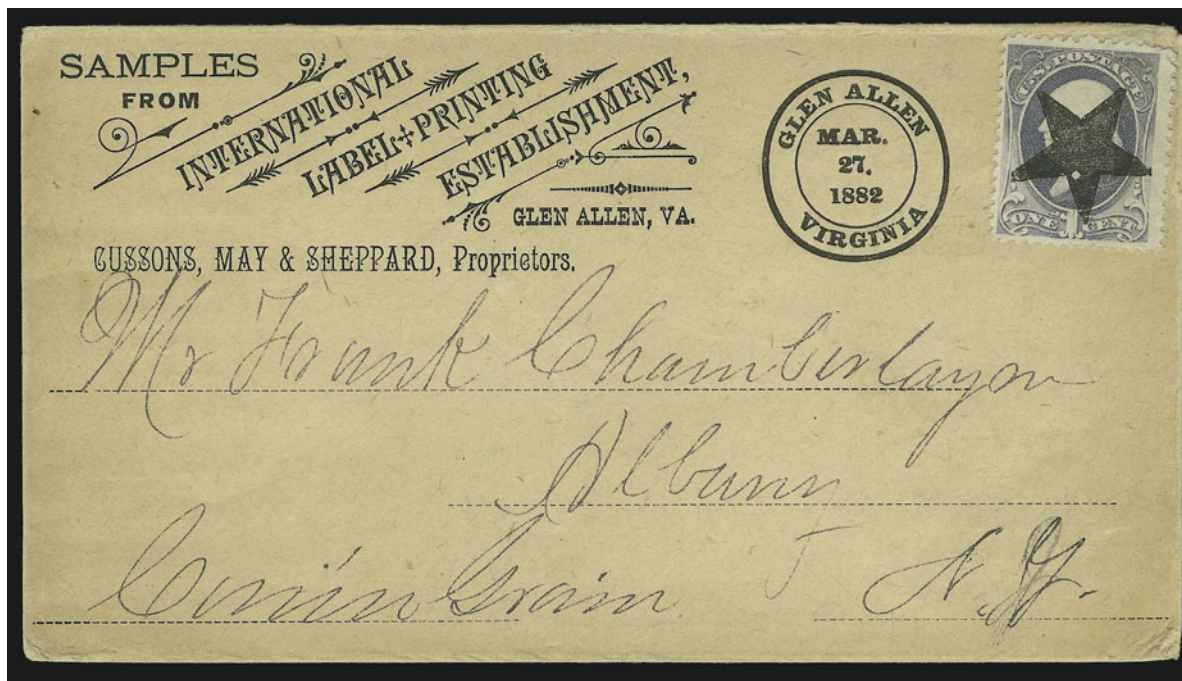 SAMPLES
FROM
INTERNATIONAL
LABEL + PRINTING
ESTABLISHMENT,
GLEN ALLEN, VA.
CUSSONS, MAY & SHEPPARD, Proprietors.
GLEN ALLEN
MAR.
27.
1882
VIRGINIA
U.S. POSTAGE
ONE 1 CENT
Mr Frank Chamberlayn
Albany
N.Y.